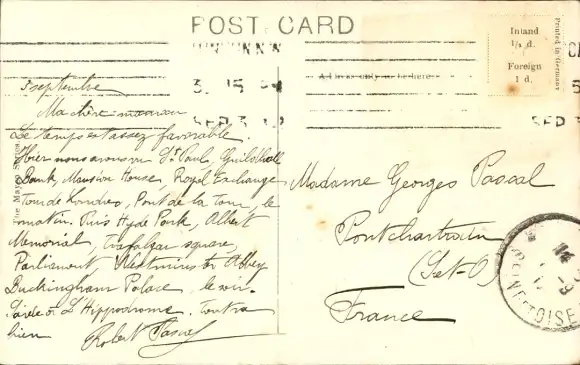 POST CARD
Inland
½ d.
Foreign
1 d.
Printed in Germany
3. 15 PM
SEP 3
SEP 3
3 septembre
Ma chère maman
Le temps est assez favorable.
Hier nous avons vu St Paul, Guildhall
Bank, Mansion House, Royal Exchange
tour de Londres, Pont de la tour, le
matin. Puis Hyde Park, Albert
Memorial, trafalgar square,
Parliament Westminster Abbey
Buckingham Palace, le soir.
Soirée à L'Hippodrome. Tout va
bien
Robert Pascal
Madame Georges Pascal
Pontchartrain
(S-et-O)
France